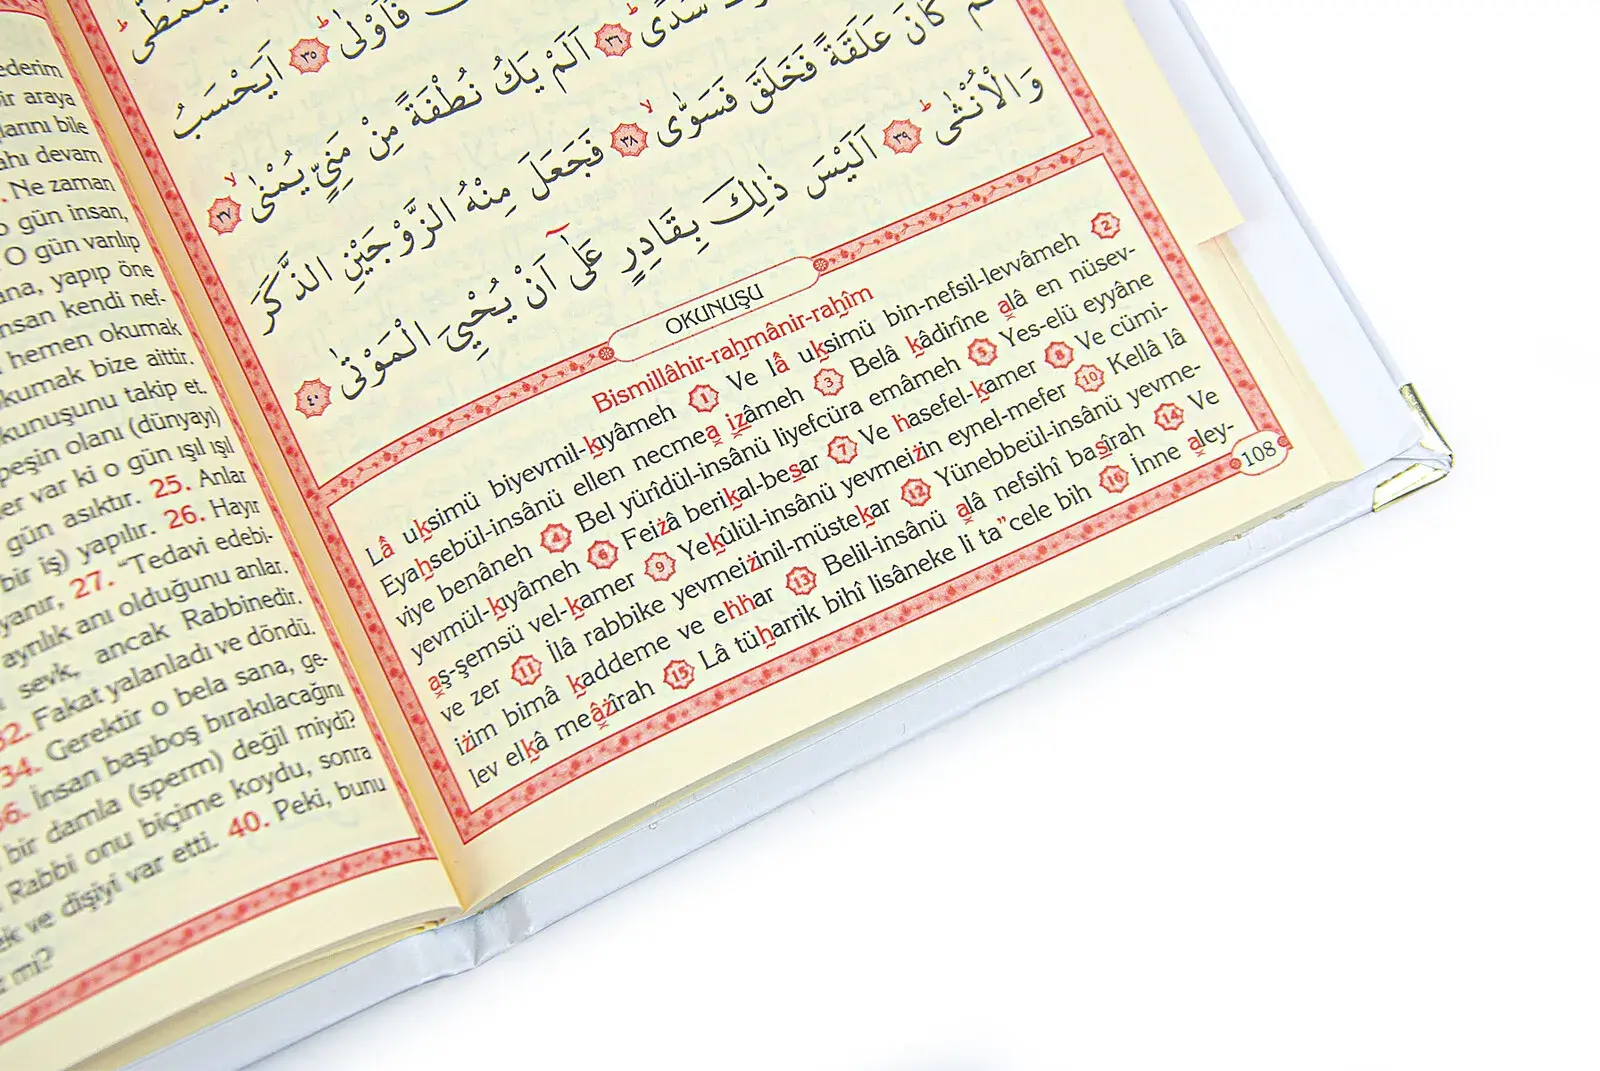 ederim
bir araya
larını bile
ahı devam
. Ne zaman
o gün insan,
O gün varılıp
ana, yapıp öne
insan kendi nef-
hemen okumak
okumak bize aittir.
kunuşunu takip et.
peşin olanı (dünyayı)
ler var ki o gün ışıl ışıl
gün asıktır. 25. Anlar
bir iş) yapılır. 26. Hayır
yanır, 27. “Tedavi edebi-
ayrılık anı olduğunu anlar.
sevk, ancak Rabbinedir.
32. Fakat yalanladı ve döndü.
34. Gerektir o bela sana, ge-
36. İnsan başıboş bırakılacağını
bir damla (sperm) değil miydi?
Rabbi onu biçime koydu, sonra
ek ve dişiyi var etti. 40. Peki, bunu
mi?
يَتَمَطّٰى
فَاَوْلٰى ﴿٣٥﴾ اَيَحْسَبُ
سُدًى ﴿٣٦﴾ اَلَمْ يَكُ نُطْفَةً مِنْ مَنِيٍّ يُمْنٰى ﴿٣٧﴾
كَانَ عَلَقَةً فَخَلَقَ فَسَوّٰى ﴿٣٨﴾ فَجَعَلَ مِنْهُ الزَّوْجَيْنِ الذَّكَرَ
وَالْاُنْثٰى ﴿٣٩﴾ اَلَيْسَ ذٰلِكَ بِقَادِرٍ عَلٰٓى اَنْ يُحْيِيَ الْمَوْتٰى ﴿٤٠﴾
OKUNUŞU
Bismillâhir-rahmânir-rahîm
Lâ uksimü biyevmil-kıyâmeh 1 Ve lâ uksimü bin-nefsil-levvâmeh 2
Eyahsebül-insânü ellen necmea izâmeh 3 Belâ kâdirîne alâ en nüsev-
viye benâneh 4 Bel yürîdül-insânü liyefcüra emâmeh 5 Yes-elü eyyâne
yevmül-kıyâmeh 6 Feiżâ berikal-besar 7 Ve hasefel-kamer 8 Ve cümi-
aş-şemsü vel-kamer 9 Yekûlül-insânü yevmeiżin eynel-mefer 10 Kellâ lâ
ve zer 11 İlâ rabbike yevmeiżinil-müstekar 12 Yünebbeül-insânü yevme-
iżim bimâ kaddeme ve ehhar 13 Belil-insânü alâ nefsihî basîrah 14 Ve
lev elkâ meâżîrah 15 Lâ tüharrik bihî lisâneke li ta”cele bih 16 İnne aley-
108